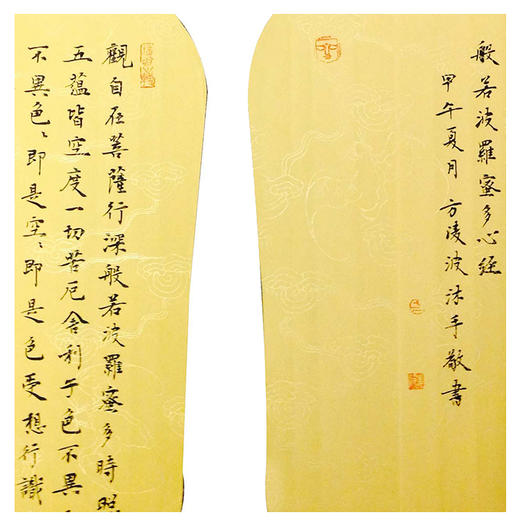 般若波羅蜜多心經
甲午夏月 方陵波沐手敬書
觀自在菩薩行深般若波羅蜜多時照
五蘊皆空度一切苦厄舍利子色不異
不異色〻即是空〻即是色受想行識